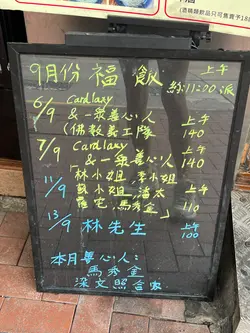 (酒精類飲品只可售賣予18
9月份 福飯 上午
11:00派
6/9 Cardlaxy
&一眾善心人 上午
(佛教義工隊 140
7/9 Cardlaxy 上午
&一眾善心人 140
11/9 林小姐,李小姐
蘇小姐,潘太 上午
羅宅,馬秀金 110
13/9 林先生 上午
100
本月善心人:
馬秀金
梁文照合家